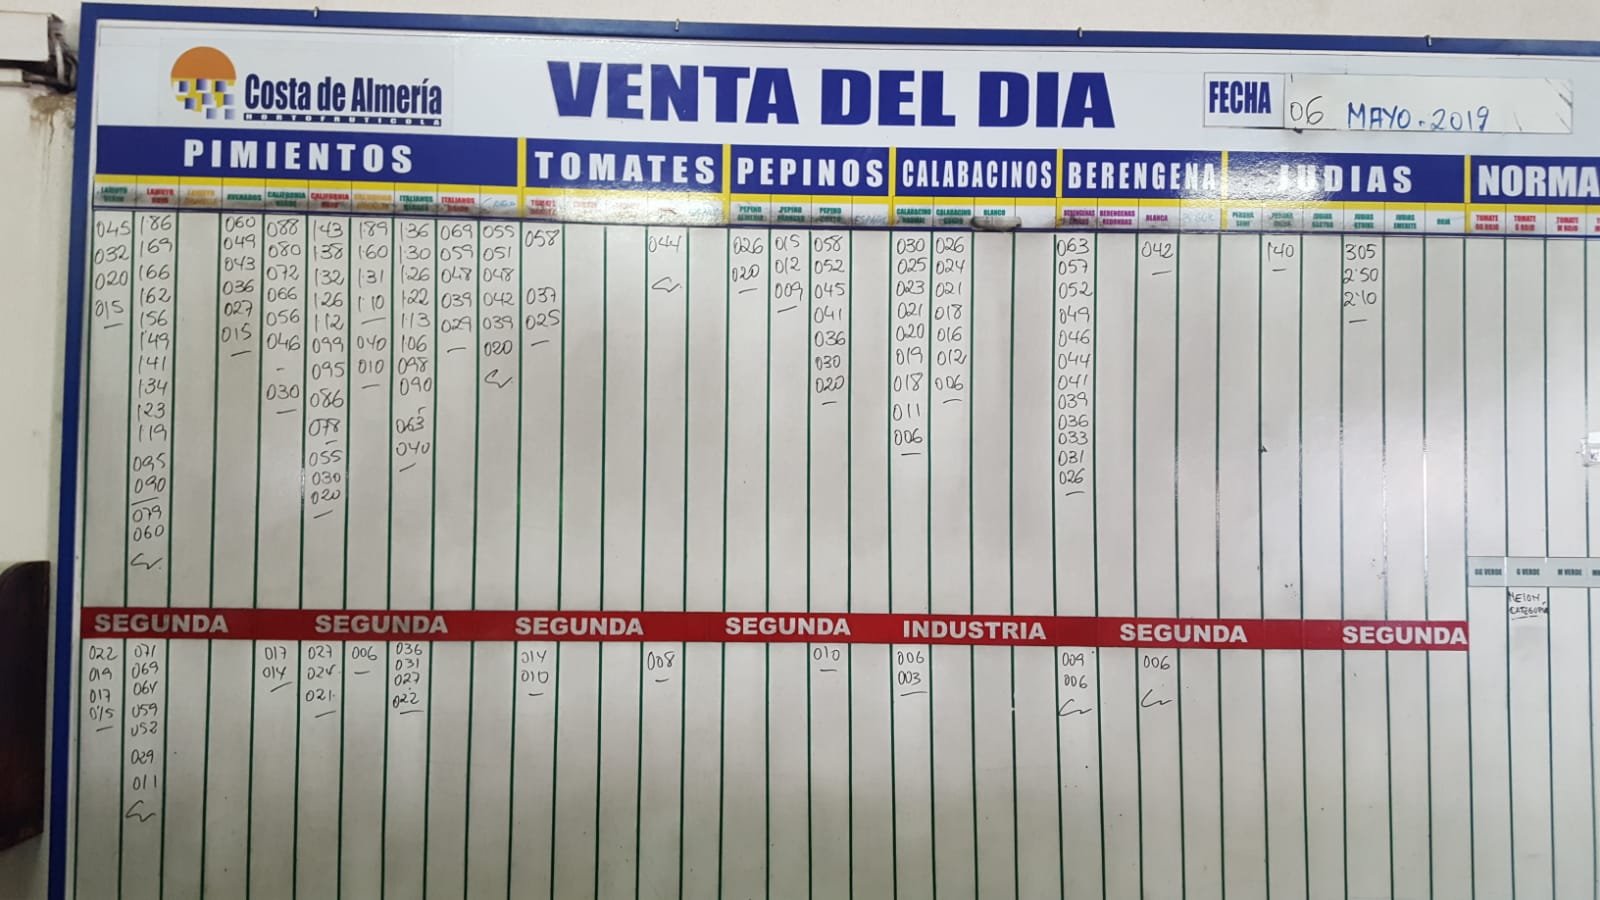 Costa de Almería
HORTOFRUTICOLA
VENTA DEL DIA
FECHA
06 MAYO - 2019
PIMIENTOS
TOMATES
PEPINOS
CALABACINOS
BERENGENA
JUDIAS
NORMA
LAMUYO VERDE
LAMUYO ROJO
CALIFORNIA VERDE
CALIFORNIA ROJO
ITALIANOS VERDES
PEPINO ALMERIA
PEPINO CORTO
CALABACINO GORDO
BLANCO
BERENGENAS REDONDAS
BLANCA
ROJA
TOMATE GG ROJO
TOMATE G ROJO
TOMATE M ROJO
045
032
020
015
186
169
166
162
156
149
141
134
123
119
095
090
079
060
060
049
043
036
027
015
088
080
072
066
056
046
030
143
138
132
126
112
099
095
086
078
055
030
020
189
160
131
110
040
010
136
130
126
122
113
106
098
090
063
040
069
059
048
039
029
055
051
048
042
039
020
058
037
025
044
026
020
015
012
009
058
052
045
041
036
030
020
030
025
023
021
020
019
018
011
006
026
024
021
018
016
012
006
063
057
052
049
046
044
041
039
036
033
031
026
042
140
305
2'50
2'10
GG VERDE
G VERDE
M VERDE
MELON
CATEGORIA
SEGUNDA
SEGUNDA
SEGUNDA
SEGUNDA
INDUSTRIA
SEGUNDA
SEGUNDA
022
019
017
015
071
069
064
059
052
029
011
017
014
027
024
021
006
036
031
027
022
014
010
008
010
006
003
009
006
006